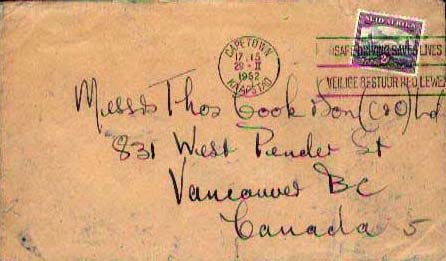 SUID-AFRIKA
CAPETOWN
17.15
29-II
1962
KAAPSTAD
SAFE DRIVING SAVES LIVES
VEILIGE BESTUUR RED LEWE
2
Messrs Thos Cook & Son (        ) Ltd
831 West Pender St
Vancouver BC
Canada 5